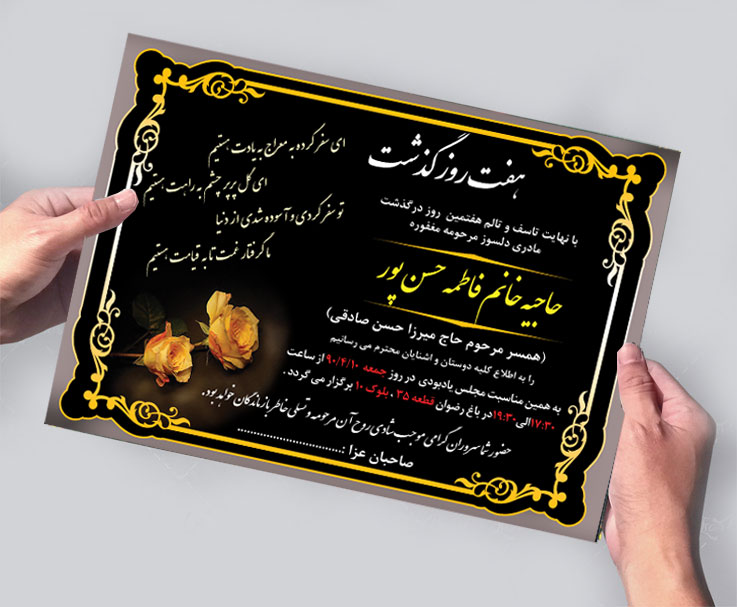 هفت روز گذشت
با نهایت تاسف و تالم هفتمین روز درگذشت
مادری دلسوز مرحومه مغفوره
حاجیه خانم فاطمه حسن پور
(همسر مرحوم حاج میرزا حسن صادقی)
را به اطلاع کلیه دوستان و اشنایان محترم می رسانیم
به همین مناسبت مجلس یادبودی در روز جمعه ۹۰/۴/۱۰ از ساعت
۱۷:۳۰الی۱۹:۳۰در باغ رضوان قطعه ۳۵ ، بلوک ۱۰ برگزار می گردد .
حضور شما سروران گرامی موجب شادی روح آن مرحومه و تسلی خاطر بازماندگان خواهد بود.
صاحبان عزا :..............................
ای سفر کرده به معراج به یادت هستیم
ای گل پرپر چشم به راهت هستیم
تو سفر کردی و آسوده شدی از دنیا
ما گرفتار غمت تا به قیامت هستیم